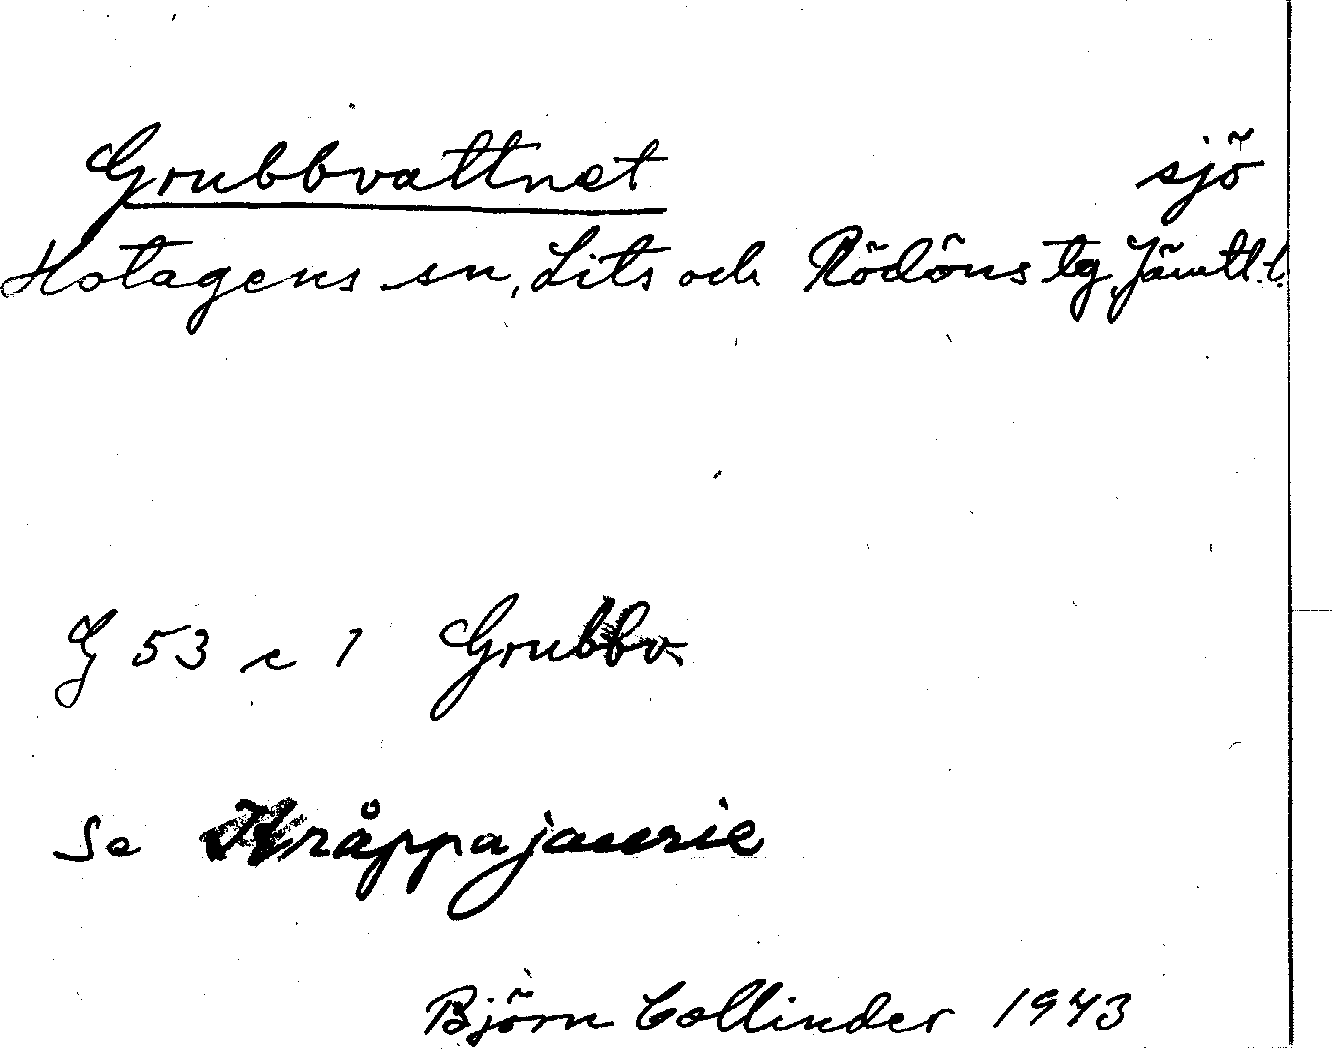 Grubbvattnet sjö
Hotagens sn, Lits och Rödöns tg, Jämtl. l.
G 53 c 1 Grubbv.
Se Kråppajaurie
Björn Collinder 1943